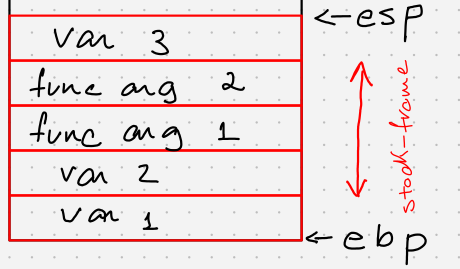 ←esp
var 3
func arg 2
func arg 1
var 2
var 1
←ebp
stack-frame